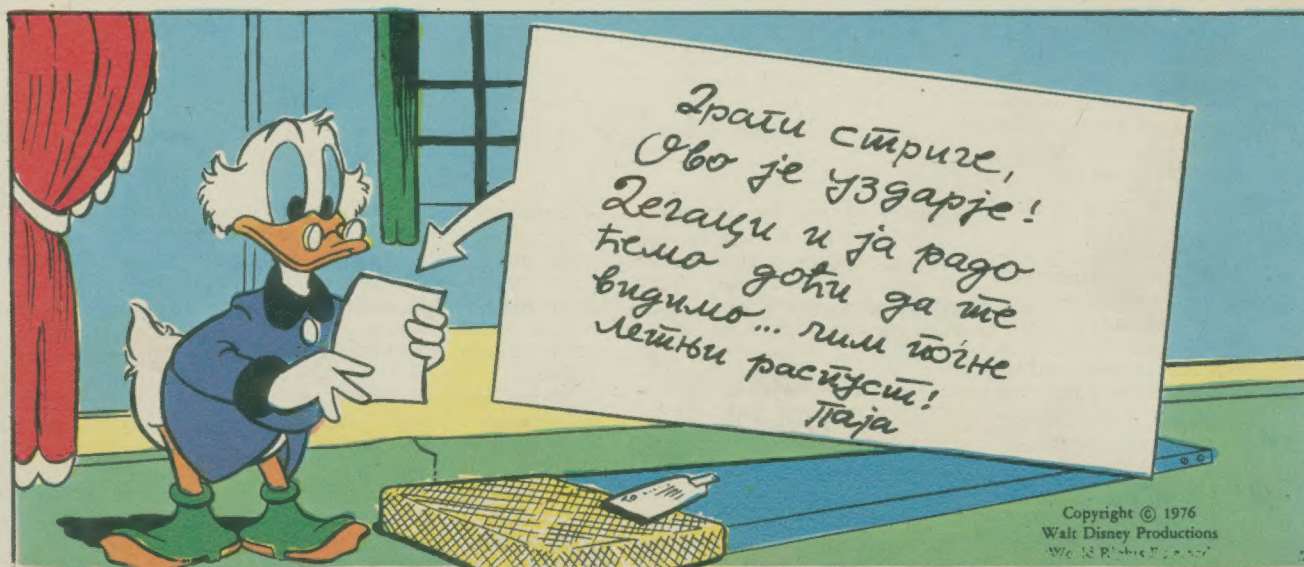 Драги стриче,
Ово је уздарје!
Дечаци и ја радо
ћемо доћи да те
видимо... чим почне
летњи распуст!
Паја
Copyright © 1976
Walt Disney Productions
World Rights Reserved